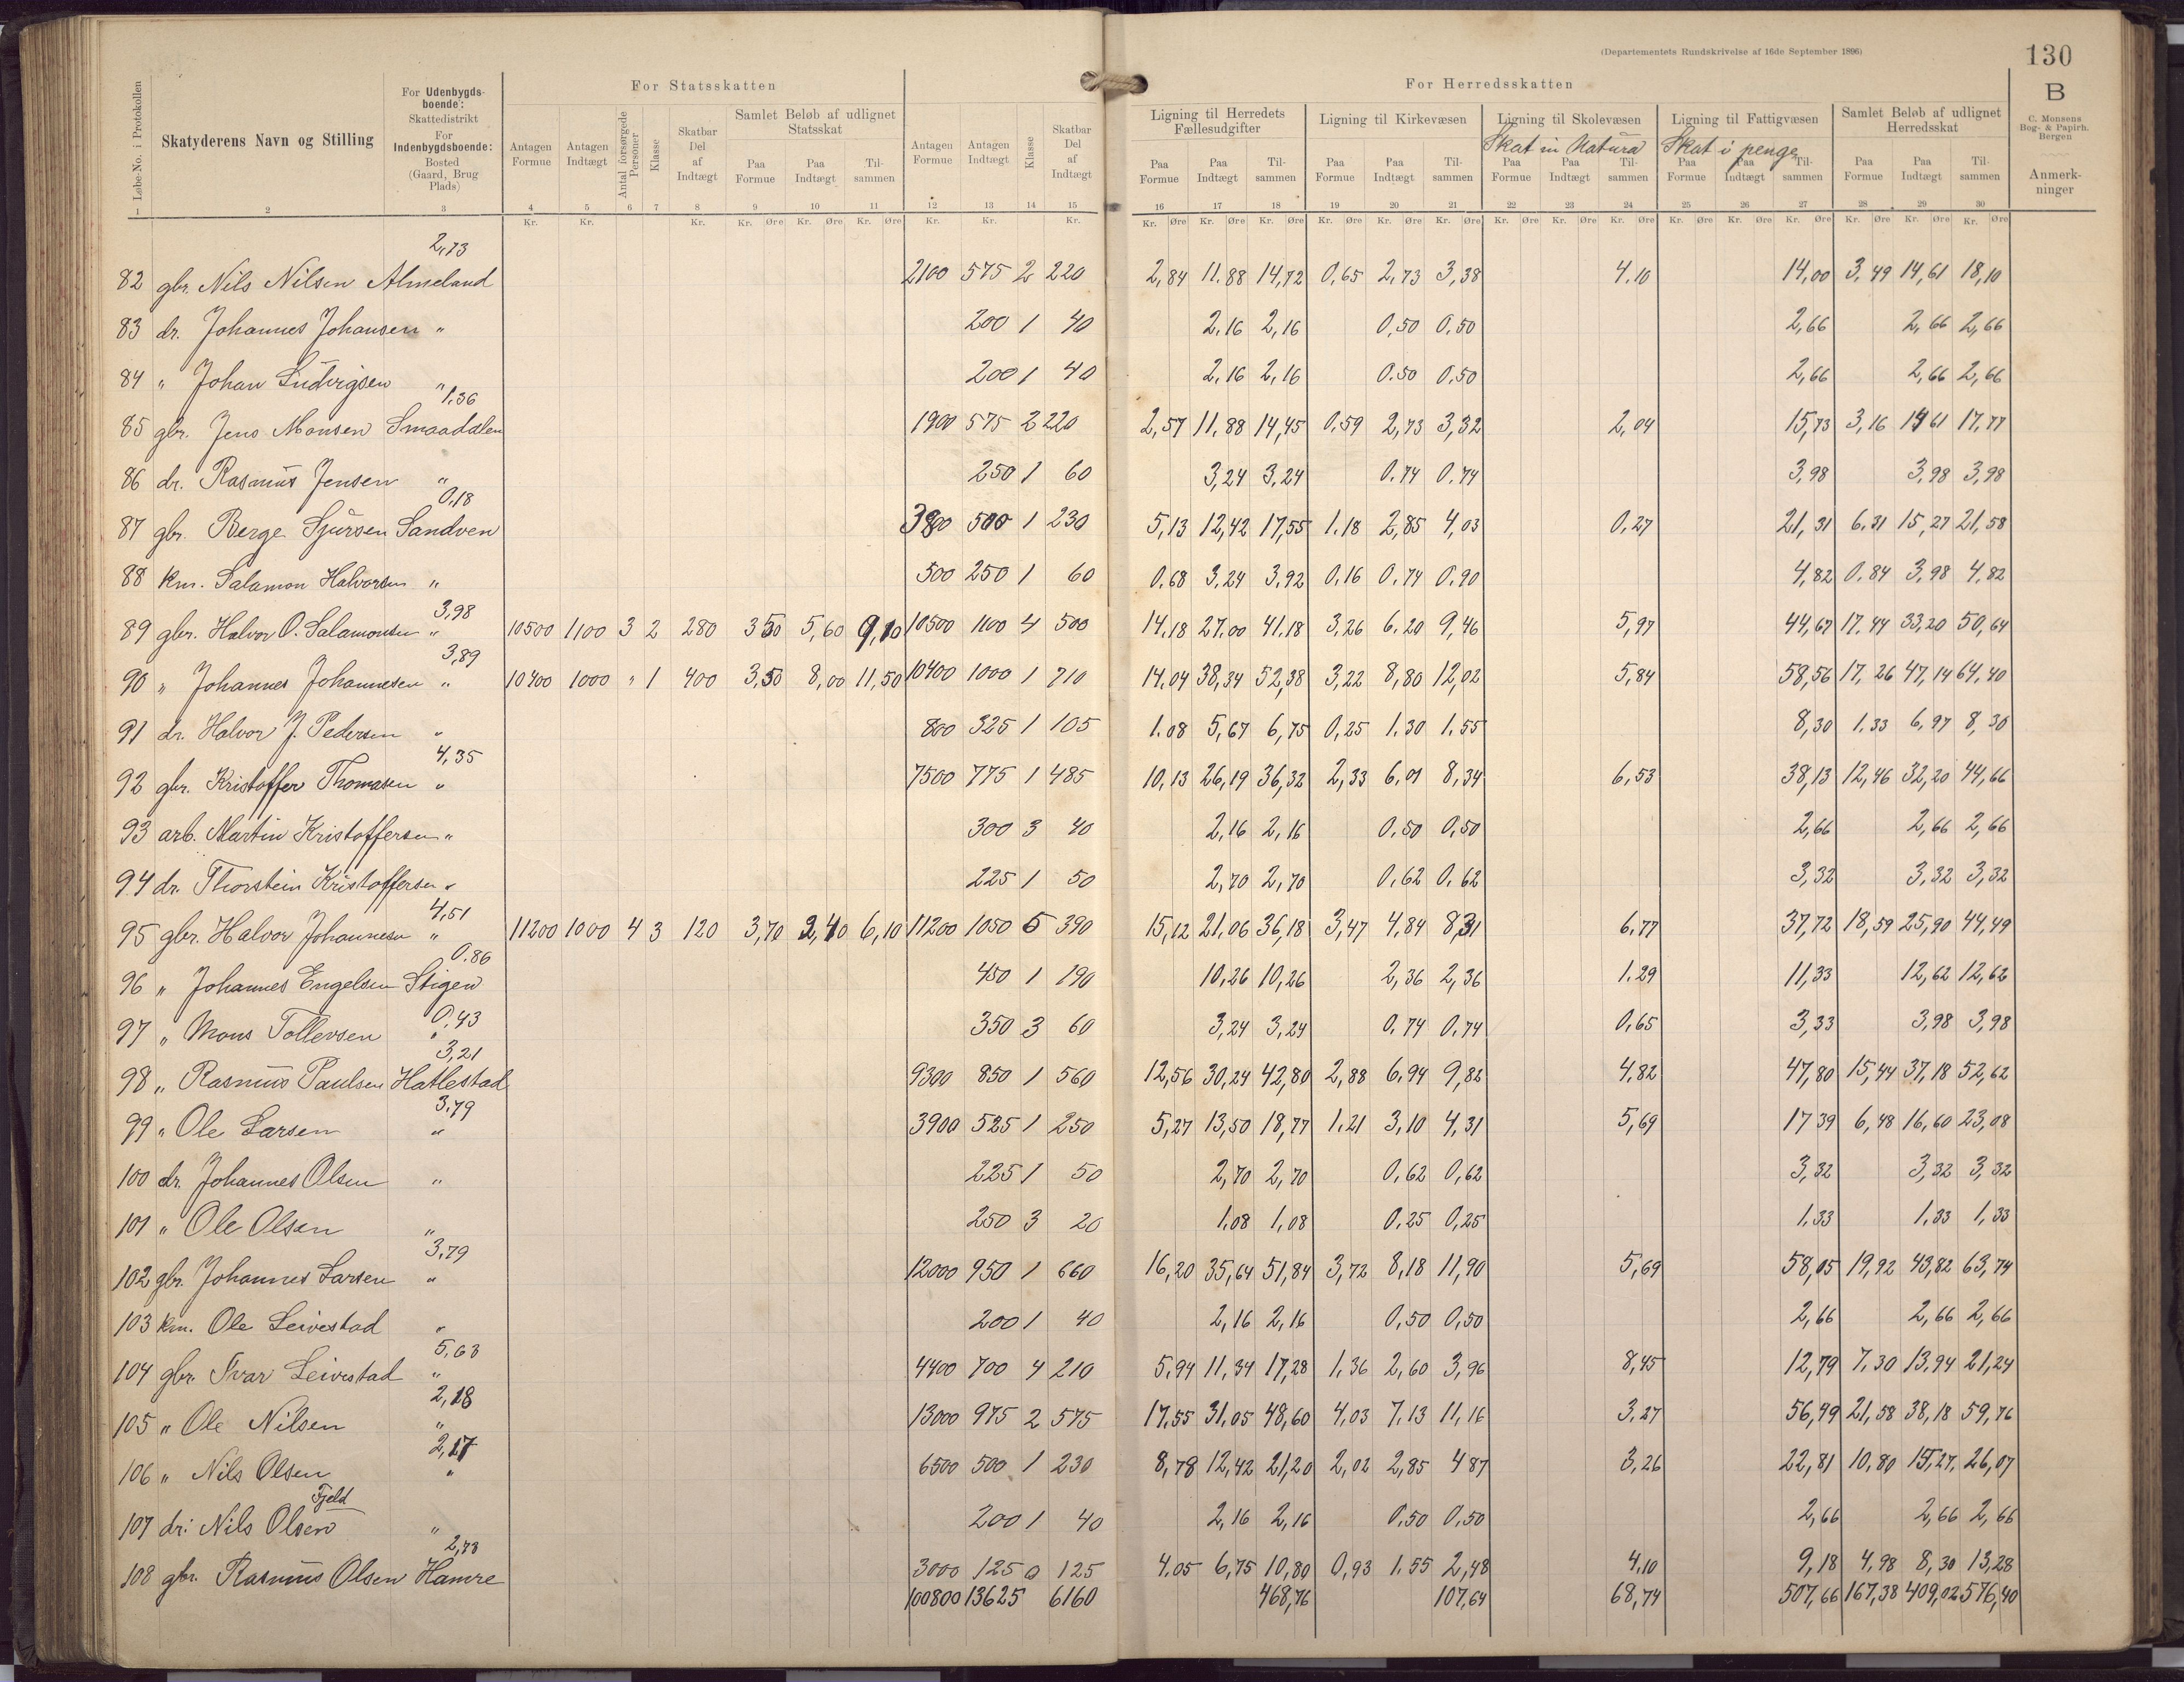 (Departementets Rundskrivelse af 16de September 1896)
130
B
C. Monsens Bog- & Papirh. Bergen
Anmerkninger
For Statsskatten
For Herredsskatten
Løbe-No. i Protokollen
Skatyderens Navn og Stilling
For Udenbygdsboende: Skattedistrikt
For Indenbygdsboende: Bosted (Gaard, Brug Plads)
Antagen Formue
Antagen Indtægt
Antal forsørgede Personer
Klasse
Skatbar Del af Indtægt
Samlet Beløb af udlignet Statsskat
Paa Formue
Paa Indtægt
Tilsammen
Antagen Formue
Antagen Indtægt
Klasse
Skatbar Del af Indtægt
Ligning til Herredets Fællesudgifter
Paa Formue Paa Indtægt Tilsammen
Ligning til Kirkevæsen
Paa Formue Paa Indtægt Tilsammen
Ligning til Skolevæsen
Skat in Natura
Paa Formue Paa Indtægt Tilsammen
Ligning til Fattigvæsen
Skat i penge
Paa Formue Paa Indtægt Tilsammen
Samlet Beløb af udlignet Herredsskat
Paa Formue Paa Indtægt Tilsammen
1 2 3 4 5 6 7 8 9 10 11 12 13 14 15 16 17 18 19 20 21 22 23 24 25 26 27 28 29 30
Kr. Kr. Kr. Kr. Øre Kr. Øre Kr. Øre Kr. Kr. Kr. Kr. Øre Kr. Øre Kr. Øre Kr. Øre Kr. Øre Kr. Øre Kr. Øre Kr. Øre Kr. Øre Kr. Øre Kr. Øre Kr. Øre Kr. Øre Kr. Øre Kr. Øre
2,73
82 gbr. Nils Nilsen Almeland 2100 575 2 220 2,84 11.88 14,72 0,65 2,73 3,38 4,10 14,00 3,49 14,61 18,10
83 dr. Johannes Johansen " 200 1 40 2,16 2,16 0,50 0,50 2,66 2,66 2,66
84 " Johan Ludvigsen " 200 1 40 2,16 2,16 0.50 0,50 2,66 2,66 2,66
1,36
85 gbr. Jens Monsen Smaadalen 1900 575 2 220 2,57 11.88 14,45 0,59 2,73 3,32 2,04 15,73 3,16 14 61 17,77
86 dr. Rasmus Jensen " 250 1 60 3,24 3,24 0.74 0.74 3,98 3,98 3,98
0,18
87 gbr. Berge Sjursen Sandven 3800 500 1 230 5,13 12,42 17,55 1.18 2,85 4,03 0,27 21,31 6,31 15,27 21,58
88 Km. Salamon Halvorsen " 500 250 1 60 0.68 3,24 3,92 0,16 0,74 0,90 4,82 0,84 3,98 4,82
3,98
89 gbr. Halvor O. Salamonsen " 10500 1100 3 2 280 3 50 5,60 9,10 10500 1100 4 500 14,18 27,00 41.18 3,26 6,20 9,46 5,97 44,67 17,44 33,20 50,64
3,89
90 " Johannes Johannesen " 10400 1000 " 1 400 3,50 8,00 11,50 10400 1000 1 710 14,04 38,34 52,38 3,22 8,80 12,02 5,84 58,56 17,26 47,14 64,40
91 dr. Halvor J. Pedersen " 800 325 1 105 1.08 5,67 6,75 0,25 1.30 1.55 8,30 1.33 6,97 8,30
4,35
92 gbr. Kristoffer Thomasen " 7500 775 1 485 10,13 26,19 36,32 2,33 6,01 8,34 6,53 38,13 12,46 32,20 44,66
93 arb. Martin Kristoffersen " 300 3 40 2,16 2,16 0,50 0,50 2,66 2,66 2,66
94 dr. Thorstein Kristoffersen " 225 1 50 2,70 2,70 0,62 0,62 3,32 3,32 3,32
4,51
95 gbr. Halvor Johannesen " 11200 1000 4 3 120 3,70 2,40 6,10 11200 1050 5 390 15,12 21,06 36,18 3,47 4,84 8,31 6,77 37,72 18,59 25,90 44,49
0.86
96 " Johannes Engelsen Stigen 450 1 190 10,26 10,26 2,36 2,36 1.29 11,33 12,62 12,62
0,43
97 " Mons Tollevsen " 350 3 60 3,24 3,24 0,74 0,74 0,65 3,33 3,98 3,98
3,21
98 " Rasmus Paulsen Hatlestad 9300 850 1 560 12,56 30,24 42,80 2,88 6,94 9,82 4,82 47,80 15,44 37,18 52,62
3,79
99 " Ole Larsen " 3900 525 1 250 5,27 13,50 18,77 1.21 3,10 4,31 5,69 17 39 6,48 16,60 23,08
100 dr. Johannes Olsen " 225 1 50 2,70 2,70 0,62 0,62 3,32 3,32 3,32
101 " Ole Olsen " 250 3 20 1,08 1,08 0,25 0,25 1,33 1,33 1,33
3,79
102 gbr. Johannes Larsen " 12000 950 1 660 16,20 35,64 51,84 3,72 8,18 11,90 5,69 58,05 19,92 43,82 63,74
103 Km. Ole Leivestad " 200 1 40 2,16 2,16 0,50 0,50 2,66 2,66 2,66
5,63
104 gbr. Ivar Leivestad " 4400 700 4 210 5,94 11,34 17,28 1,36 2,60 3,96 8,45 12,79 7,30 13,94 21,24
2,18
105 " Ole Nilsen " 13000 975 2 575 17,55 31,05 48,60 4,03 7,13 11,16 3,27 56,49 21,58 38,18 59,76
2,17
106 " Nils Olsen " 6500 500 1 230 8,78 12,42 21,20 2,02 2,85 4 87 3,26 22,81 10,80 15,27 26,07
Fjeld
107 dr. Nils Olsen " 200 1 40 2,16 2,16 0,50 0,50 2,66 2,66 2,66
2,73
108 gbr. Rasmus Olsen Hamre 3000 125 0 125 4,05 6,75 10,80 0,93 1.55 2,48 4,10 9,18 4,98 8,30 13,28
100800 13625 6160 468,76 107,64 68,74 507,66 167,38 409,02 576,40